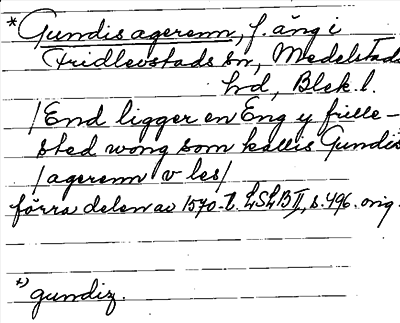 * Gundisagerenn, f. äng i
Fridlevstads sn, Medelstads
hd, Blek. l.
/End ligger en Eng y frille-
sted wong som kallis Gundis
/agerenn v les/
förra delen av 1570-t. LSLB II, s. 496. orig.
*) gundiz.